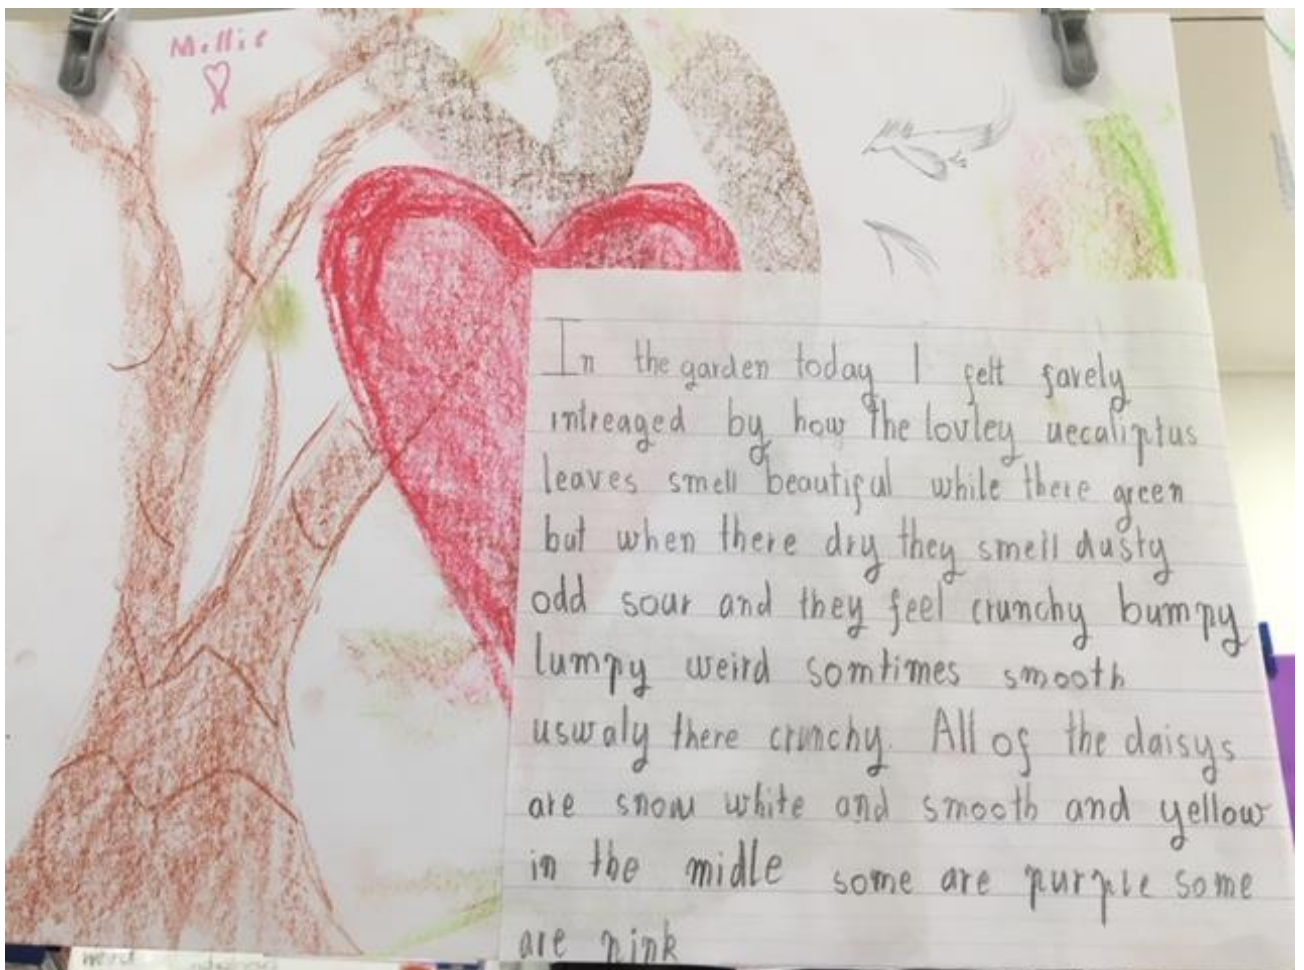 Millie
In the garden today I felt farely
intreaged by how the lovley uecaliptus
leaves smell beautiful while there green
but when there dry they smell dusty
odd sour and they feel crunchy bumpy
lumpy weird somtimes smooth
uswaly there crunchy. All of the daisys
are snow white and smooth and yellow
in the midle some are purple some
are pink